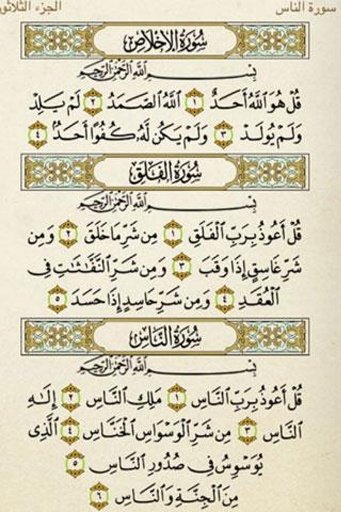 سورة الناس الجزء الثلاثو
سُورَةُ الإِخْلَاصِ
بِسْمِ اللَّهِ الرَّحْمَٰنِ الرَّحِيمِ
قُلْ هُوَ اللَّهُ أَحَدٌ ١ اللَّهُ الصَّمَدُ ٢ لَمْ يَلِدْ
وَلَمْ يُولَدْ ٣ وَلَمْ يَكُن لَّهُ كُفُوًا أَحَدٌ ٤
سُورَةُ الْفَلَقِ
بِسْمِ اللَّهِ الرَّحْمَٰنِ الرَّحِيمِ
قُلْ أَعُوذُ بِرَبِّ الْفَلَقِ ١ مِن شَرِّ مَا خَلَقَ ٢ وَمِن
شَرِّ غَاسِقٍ إِذَا وَقَبَ ٣ وَمِن شَرِّ النَّفَّاثَاتِ فِي
الْعُقَدِ ٤ وَمِن شَرِّ حَاسِدٍ إِذَا حَسَدَ ٥
سُورَةُ النَّاسِ
بِسْمِ اللَّهِ الرَّحْمَٰنِ الرَّحِيمِ
قُلْ أَعُوذُ بِرَبِّ النَّاسِ ١ مَلِكِ النَّاسِ ٢ إِلَٰهِ
النَّاسِ ٣ مِن شَرِّ الْوَسْوَاسِ الْخَنَّاسِ ٤ الَّذِي
يُوَسْوِسُ فِي صُدُورِ النَّاسِ ٥
مِنَ الْجِنَّةِ وَالنَّاسِ ٦